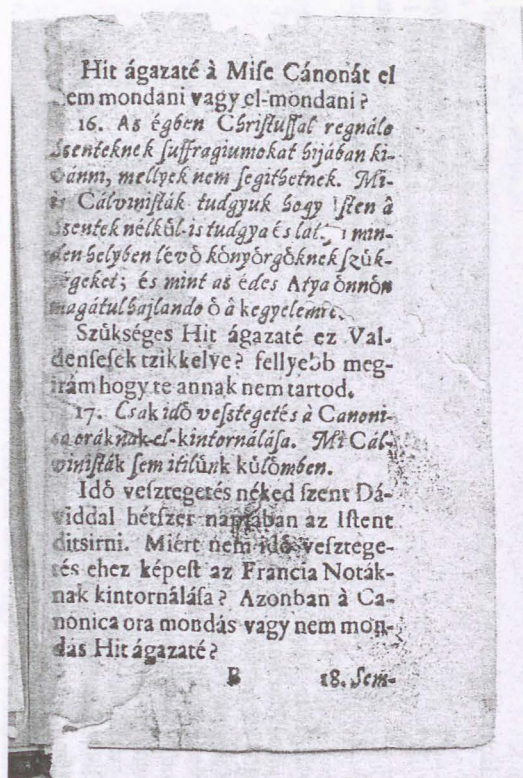 Hit ágazaté à Miſe Cánonát el
nem mondani vagy el-mondani?
16. Az égben Chriſtuſſal regnálo
ſzenteknek ſuffragiumokat hijában ki-
vánni, mellyek nem ſegithetnek. Mi-
is Cálviniſták tudgyuk hogy Iſten â
ſzentek nélkül-is tudgya és lat, min-
den helyben lévô kônyôrgôknek ſzük-
ségeket; és mint az édes Atya ônnôn
magátul hajlando ô â kegyelemre.
Szükséges Hit ágazaté ez Val-
denſeſek tzikkelye? fellyebb meg-
irám hogy te annak nem tartod.
17. Csak idô veſztegetés à Canoni-
ca oráknak-el-kintornálása. Mi Cál-
viniſták ſem itilünk külômben.
Idô veſztegetés néked ſzent Dá-
viddal hétſzer napjában az Iſtent
ditsirni. Miért nem idô veſztege-
tés ehez képeſt az Francia Noták-
nak kintornáláſa? Azonban à Ca-
nonica ora mondás vagy nem mon-
dás Hit ágazaté?
B 18. Sem-